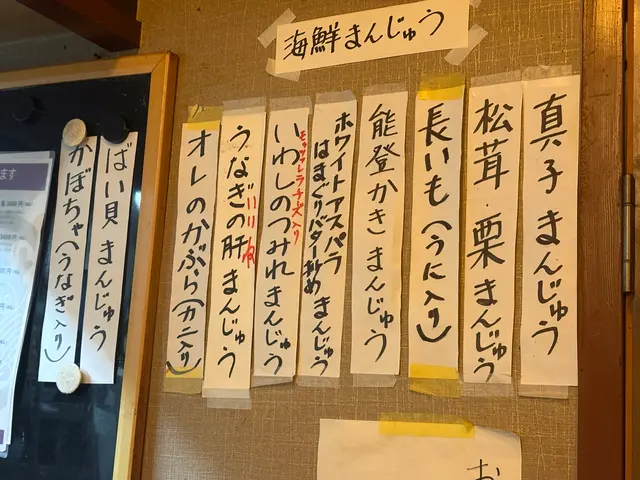 海鮮まんじゅう
真子まんじゅう
松茸・栗まんじゅう
長いも(うに入り)
能登かきまんじゅう
ホワイトアスパラ
はまぐりバター炒めまんじゅう
モッツァレラチーズ入り
いわしのつみれまんじゅう
うなぎの肝まんじゅう
オレのかぶら(カニ入り)
ばい貝まんじゅう
かぼちゃ(うなぎ入り)
お